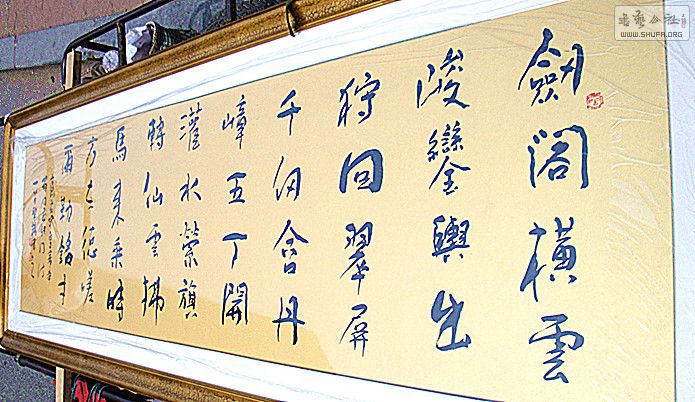 劍閣橫雲
峻鑾輿出
狩回翠屏
千仞合丹
嶂五丁開
灌水縈旗
轉仙雲拂
馬來乘時
方在德嗟
爾勒銘才
书艺公社
WWW.SHUFA.ORG